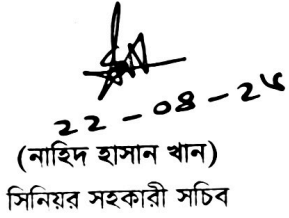 22-08-24
(নাহিদ হাসান খান)
সিনিয়র সহকারী সচিব